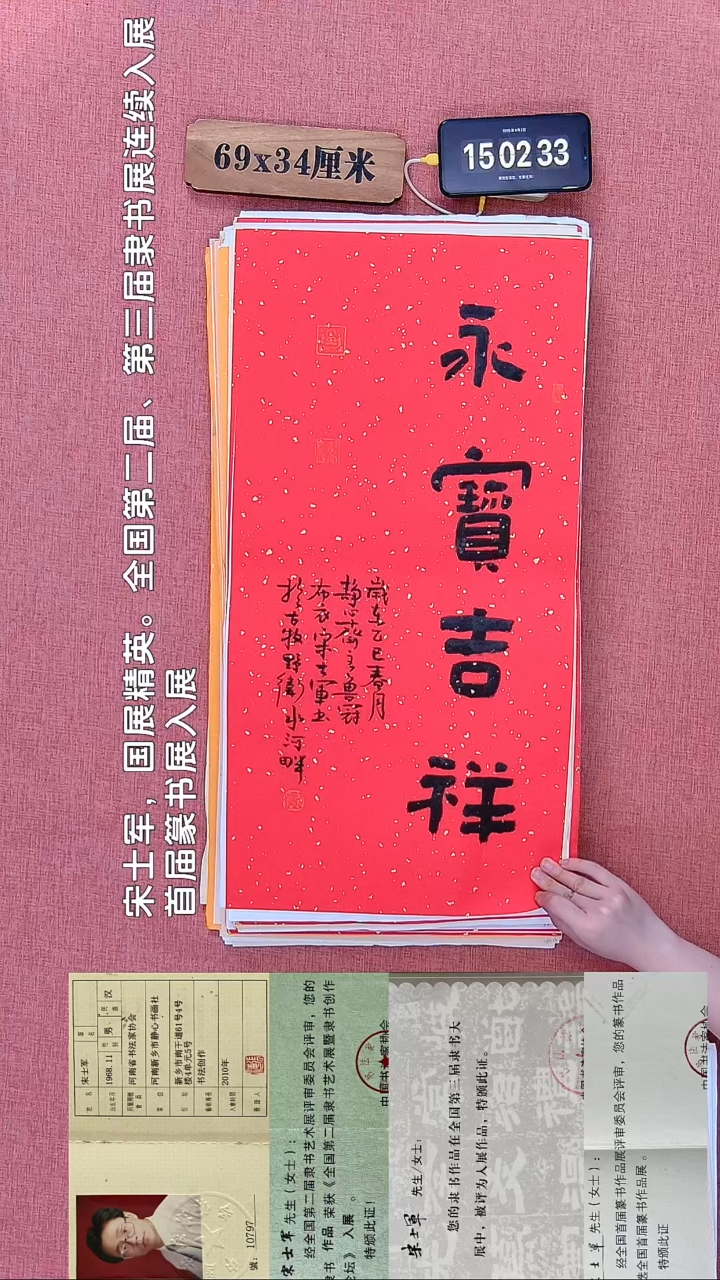 宋士军，国展精英。全国第二届、第三届隶书展连续入展
首届篆书展入展
69x34厘米
15 02 33
永寶吉祥
歲在乙巳春月
静心齋
布衣宋士軍书
於古牧野衛水河畔
姓名 宋士军
出生年月 1968.11 性别 男 民族 汉
河南省书法家协会
单位 河南新乡市静心书画社
地址 新乡市南干道61号4号楼4单元5号
书法创作
入会时间 2010年
號：10797
宋士军 先生（女士）：
经全国第二届隶书艺术展评审委员会评审，您的
隶书 作品 荣获《全国第二届隶书艺术展暨隶书创作
论坛》 入展 。
特颁此证！
宋士军 先生/女士：
您的隶书作品在全国第三届隶书大
展中，被评为入展作品，特颁此证。
士军 先生（女士）：
经全国首届篆书作品展评审委员会评审，您的篆书作品
选全国首届篆书作品展。
特颁此证